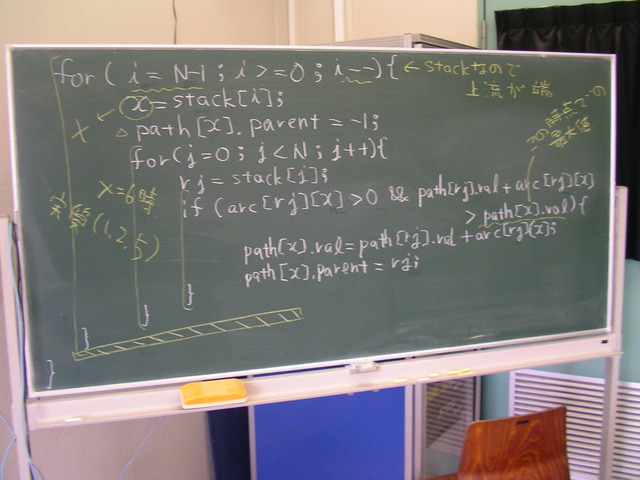 for ( i = N-1 ; i >= 0 ; i-- ) { ← stackなので
上流が端
x = stack[i];
path[x].parent = -1;
for(j=0; j<N; j++){
rj = stack[j];
if (arc[rj][x]>0 && path[rj].val + arc[rj][x]
> path[x].val){
path[x].val = path[rj].val + arc[rj][x];
path[x].parent = rj;
}
}
}
}
x
x=6 時
(1,2,5)
時点での
最大値